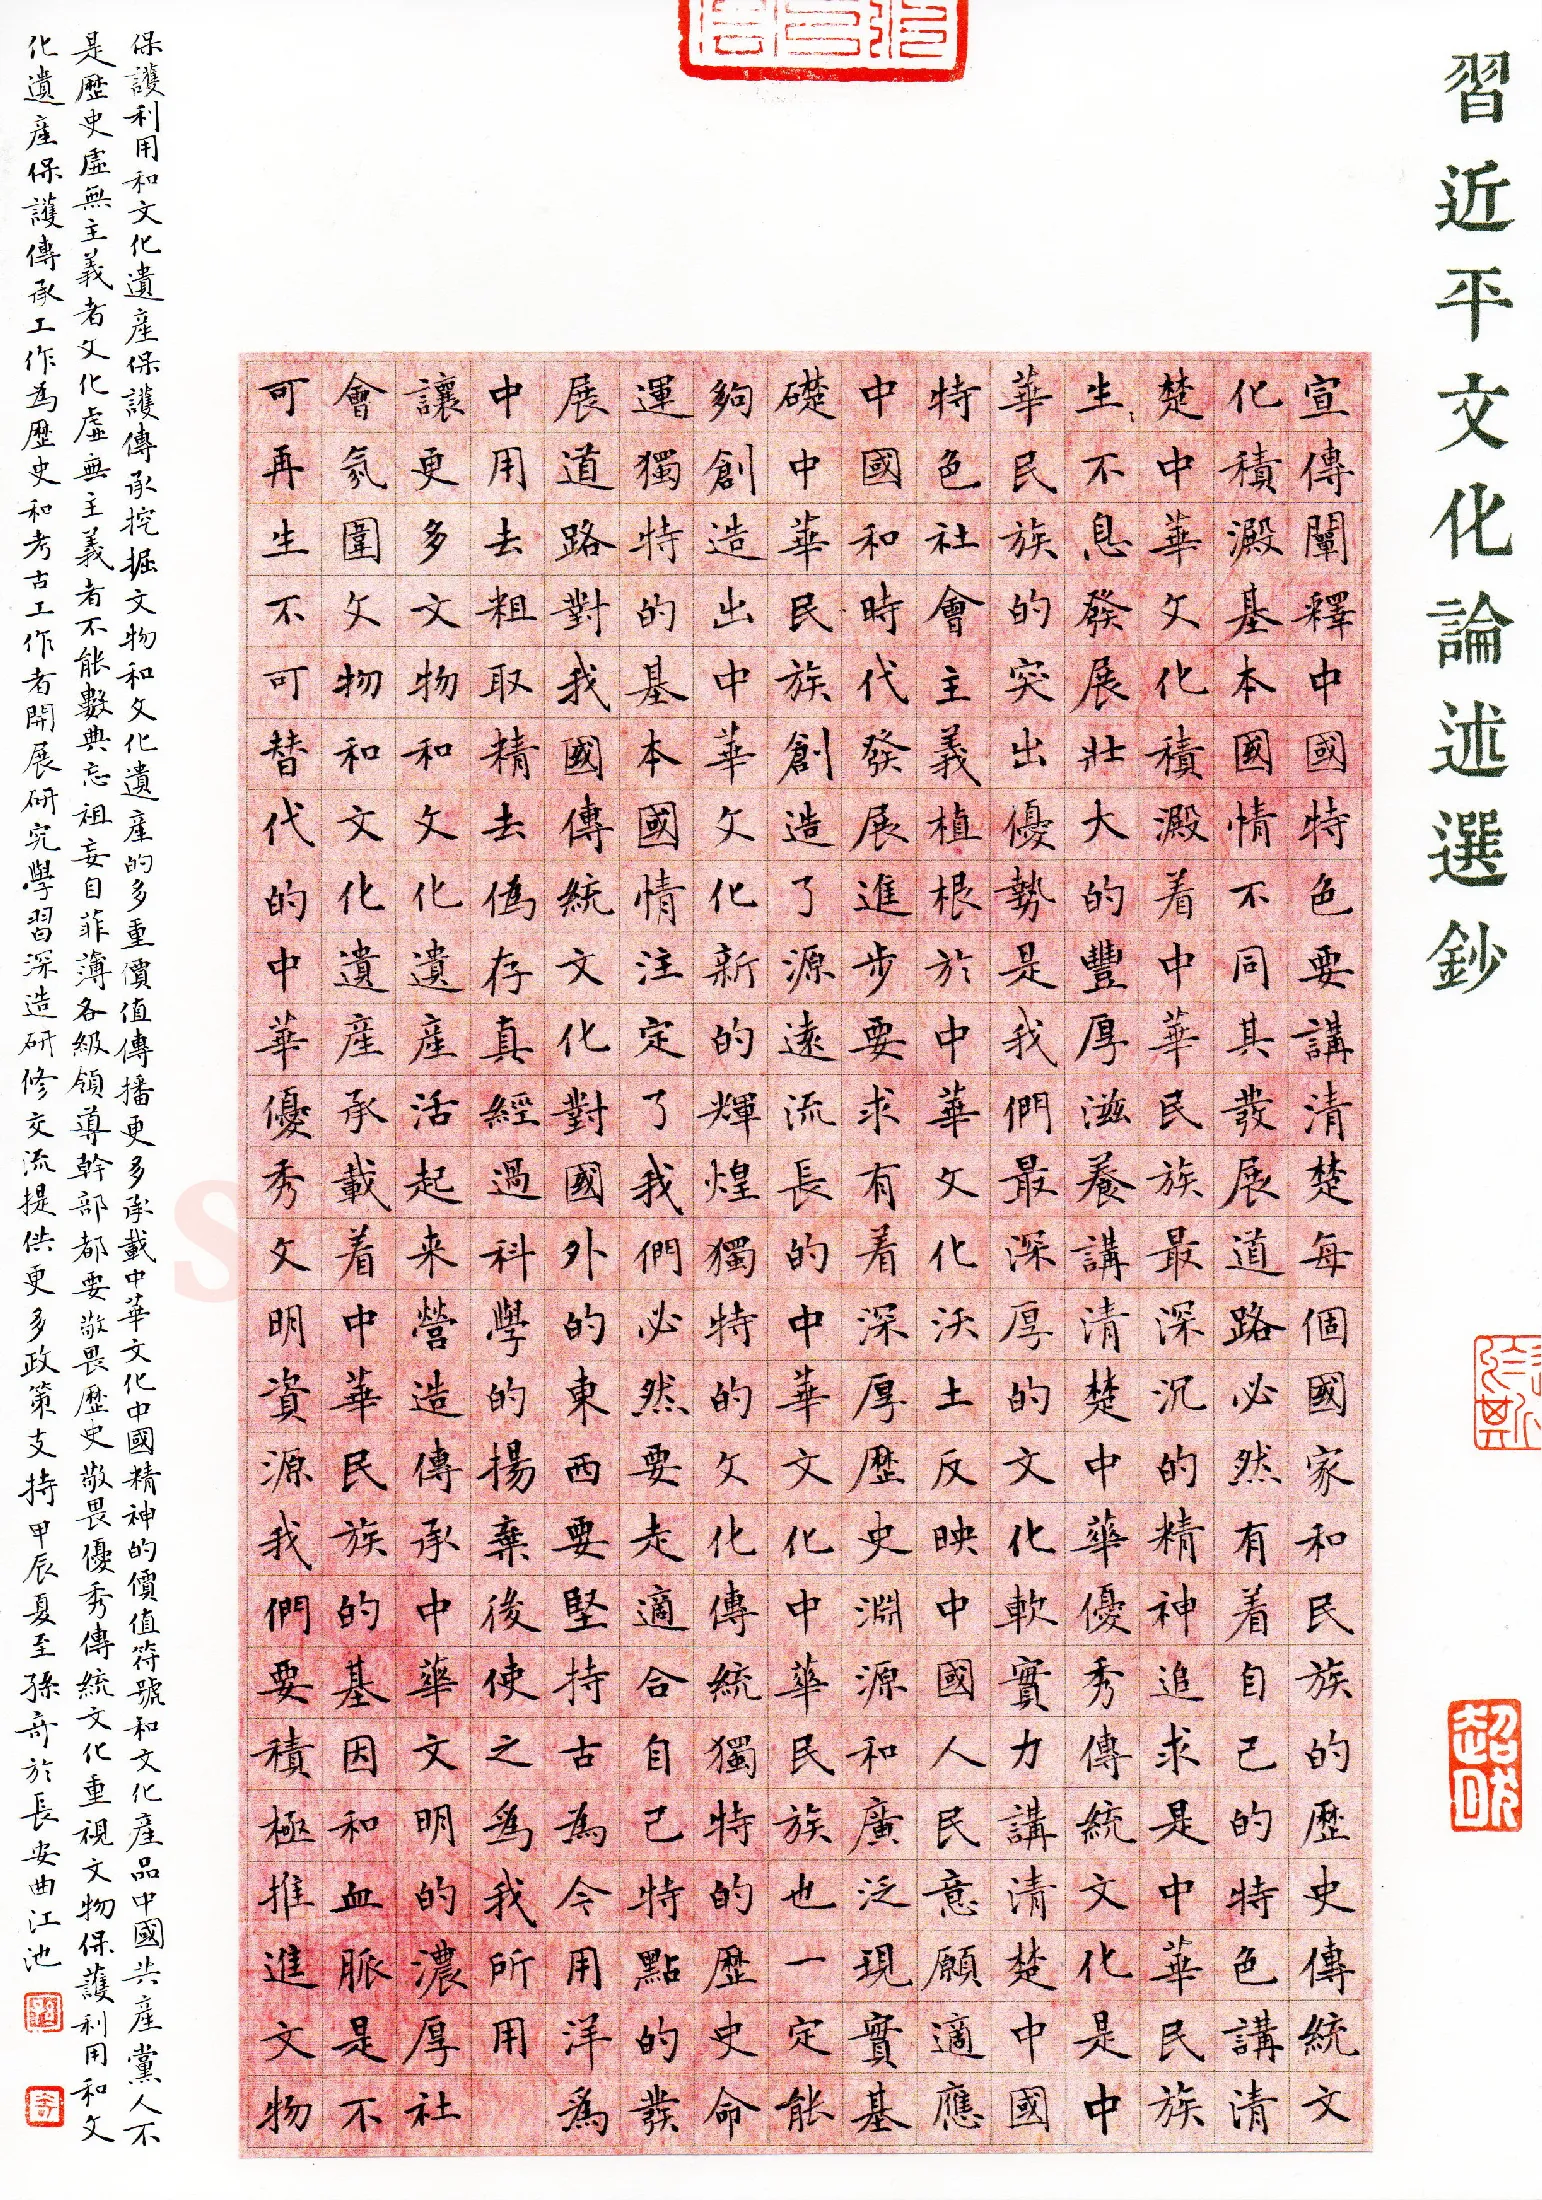 習近平文化論述選鈔
宣傳闡釋中國特色要講清楚每個國家和民族的歷史傳統文
化積澱基本國情不同其發展道路必然有着自己的特色講清
楚中華文化積澱着中華民族最深沉的精神追求是中華民族
生不息發展壯大的豐厚滋養講清楚中華優秀傳統文化是中
華民族的突出優勢是我們最深厚的文化軟實力講清楚中國
特色社會主義植根於中華文化沃土反映中國人民意願適應
中國和時代發展進步要求有着深厚歷史淵源和廣泛現實基
礎中華民族創造了源遠流長的中華文化中華民族也一定能
夠創造出中華文化新的輝煌獨特的文化傳統獨特的歷史命
運獨特的基本國情注定了我們必然要走適合自己特點的發
展道路對我國傳統文化對國外的東西要堅持古為今用洋為
中用去粗取精去偽存真經過科學的揚棄後使之為我所用
讓更多文物和文化遺產活起来營造傳承中華文明的濃厚社
會氛圍文物和文化遺產承載着中華民族的基因和血脈是不
可再生不可替代的中華優秀文明資源我們要積極推進文物
保護利用和文化遺產保護傳承挖掘文物和文化遺產的多重價值傳播更多承載中華文化中國精神的價值符號和文化產品中國共產黨人不
是歷史虛無主義者文化虛無主義者不能數典忘祖妄自菲薄各級領導幹部都要敬畏歷史敬畏優秀傳統文化重視文物保護利用和文
化遺產保護傳承工作為歷史和考古工作者開展研究學習深造研修交流提供更多政策支持甲辰夏至孫奇於長安曲江池